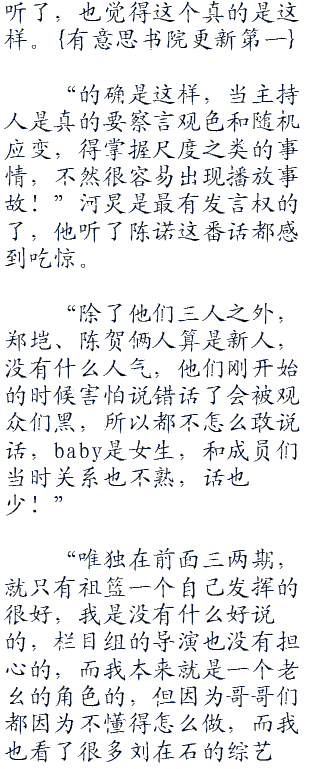 听了，也觉得这个真的是这
样。{有意思书院更新第一}
“的确是这样，当主持
人是真的要察言观色和随机
应变，得掌握尺度之类的事
情，不然很容易出现播放事
故！”河炅是最有发言权的
了，他听了陈诺这番话都感
到吃惊。
“除了他们三人之外，
郑垲、陈贺俩人算是新人，
没有什么人气，他们刚开始
的时候害怕说错话了会被观
众们黑，所以都不怎么敢说
话，baby是女生，和成员们
当时关系也不熟，话也
少！”
“唯独在前面三两期，
就只有祖篮一个自己发挥的
很好，我是没有什么好说
的，栏目组的导演也没有担
心的，而我本来就是一个老
幺的角色的，但因为哥哥们
都因为不懂得怎么做，而我
也看了很多刘在石的综艺